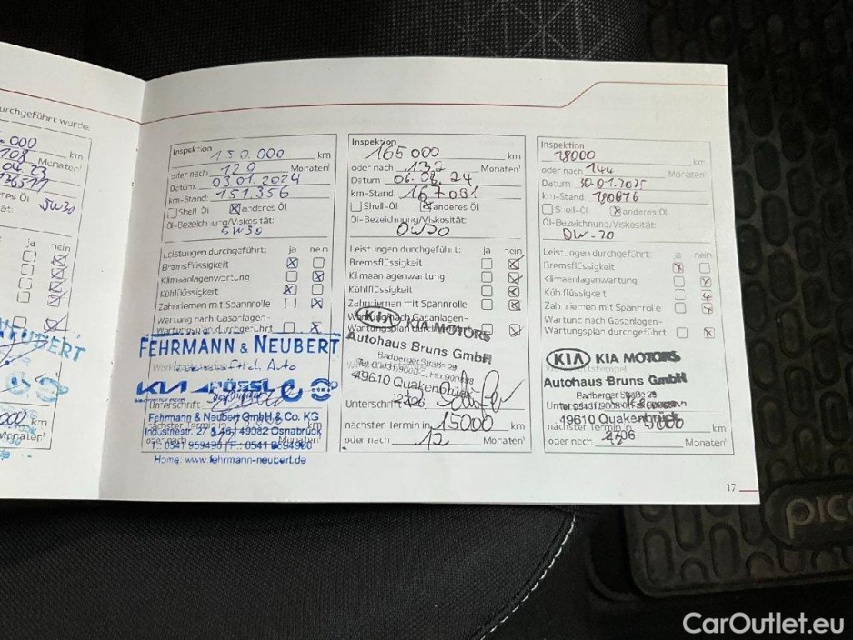 durchgeführt wurde.
.000 km
108 Monaten¹
5W30
ja nein
NEUBERT
000 km
Monaten¹
Inspektion 150.000 km
oder nach 120 Monaten¹
Datum 03.01.2024
km-Stand 151.356
Shell-Öl anderes Öl
Öl-Bezeichnung/Viskosität:
5W30
Leistungen durchgeführt: ja nein
Bremsflüssigkeit
Klimaanlagenwartung
Kühlflüssigkeit
Zahnriemen mit Spannrolle
Wartung nach Gasanlagen-
Wartungsplan durchgeführt
FEHRMANN & NEUBERT
KIA PÖSSL
Unterschrift
Fehrmann & Neubert GmbH & Co. KG
Industriestr. 27 & 46, 49082 Osnabrück
T.: 0541 959490 F.: 0541 9594960
Home: www.fehrmann-neubert.de
Inspektion 165000 km
oder nach 132 Monaten¹
Datum 06.08.24
km-Stand 167081
Shell-Öl anderes Öl
Öl-Bezeichnung/Viskosität:
0W30
Leistungen durchgeführt: ja nein
Bremsflüssigkeit
Klimaanlagenwartung
Kühlflüssigkeit
Zahnriemen mit Spannrolle
Wartung nach Gasanlagen-
Wartungsplan durchgeführt
KIA KIA MOTORS
Autohaus Bruns GmbH
Badberger Straße 29
49610 Quakenbrück
Unterschrift
nächster Termin in 15000 km
oder nach 12 Monaten¹
Inspektion
18000 km
oder nach 144 Monaten¹
Datum 30.01.2025
km-Stand 180676
Shell-Öl anderes Öl
Öl-Bezeichnung/Viskosität:
0W-20
Leistungen durchgeführt: ja nein
Bremsflüssigkeit
Klimaanlagenwartung
Kühlflüssigkeit
Zahnriemen mit Spannrolle
Wartung nach Gasanlagen-
Wartungsplan durchgeführt
KIA KIA MOTORS
Autohaus Bruns GmbH
Badberger Straße 29
49610 Quakenbrück
nächster Termin in km
oder nach Monaten¹
17
pica
CarOutlet.eu